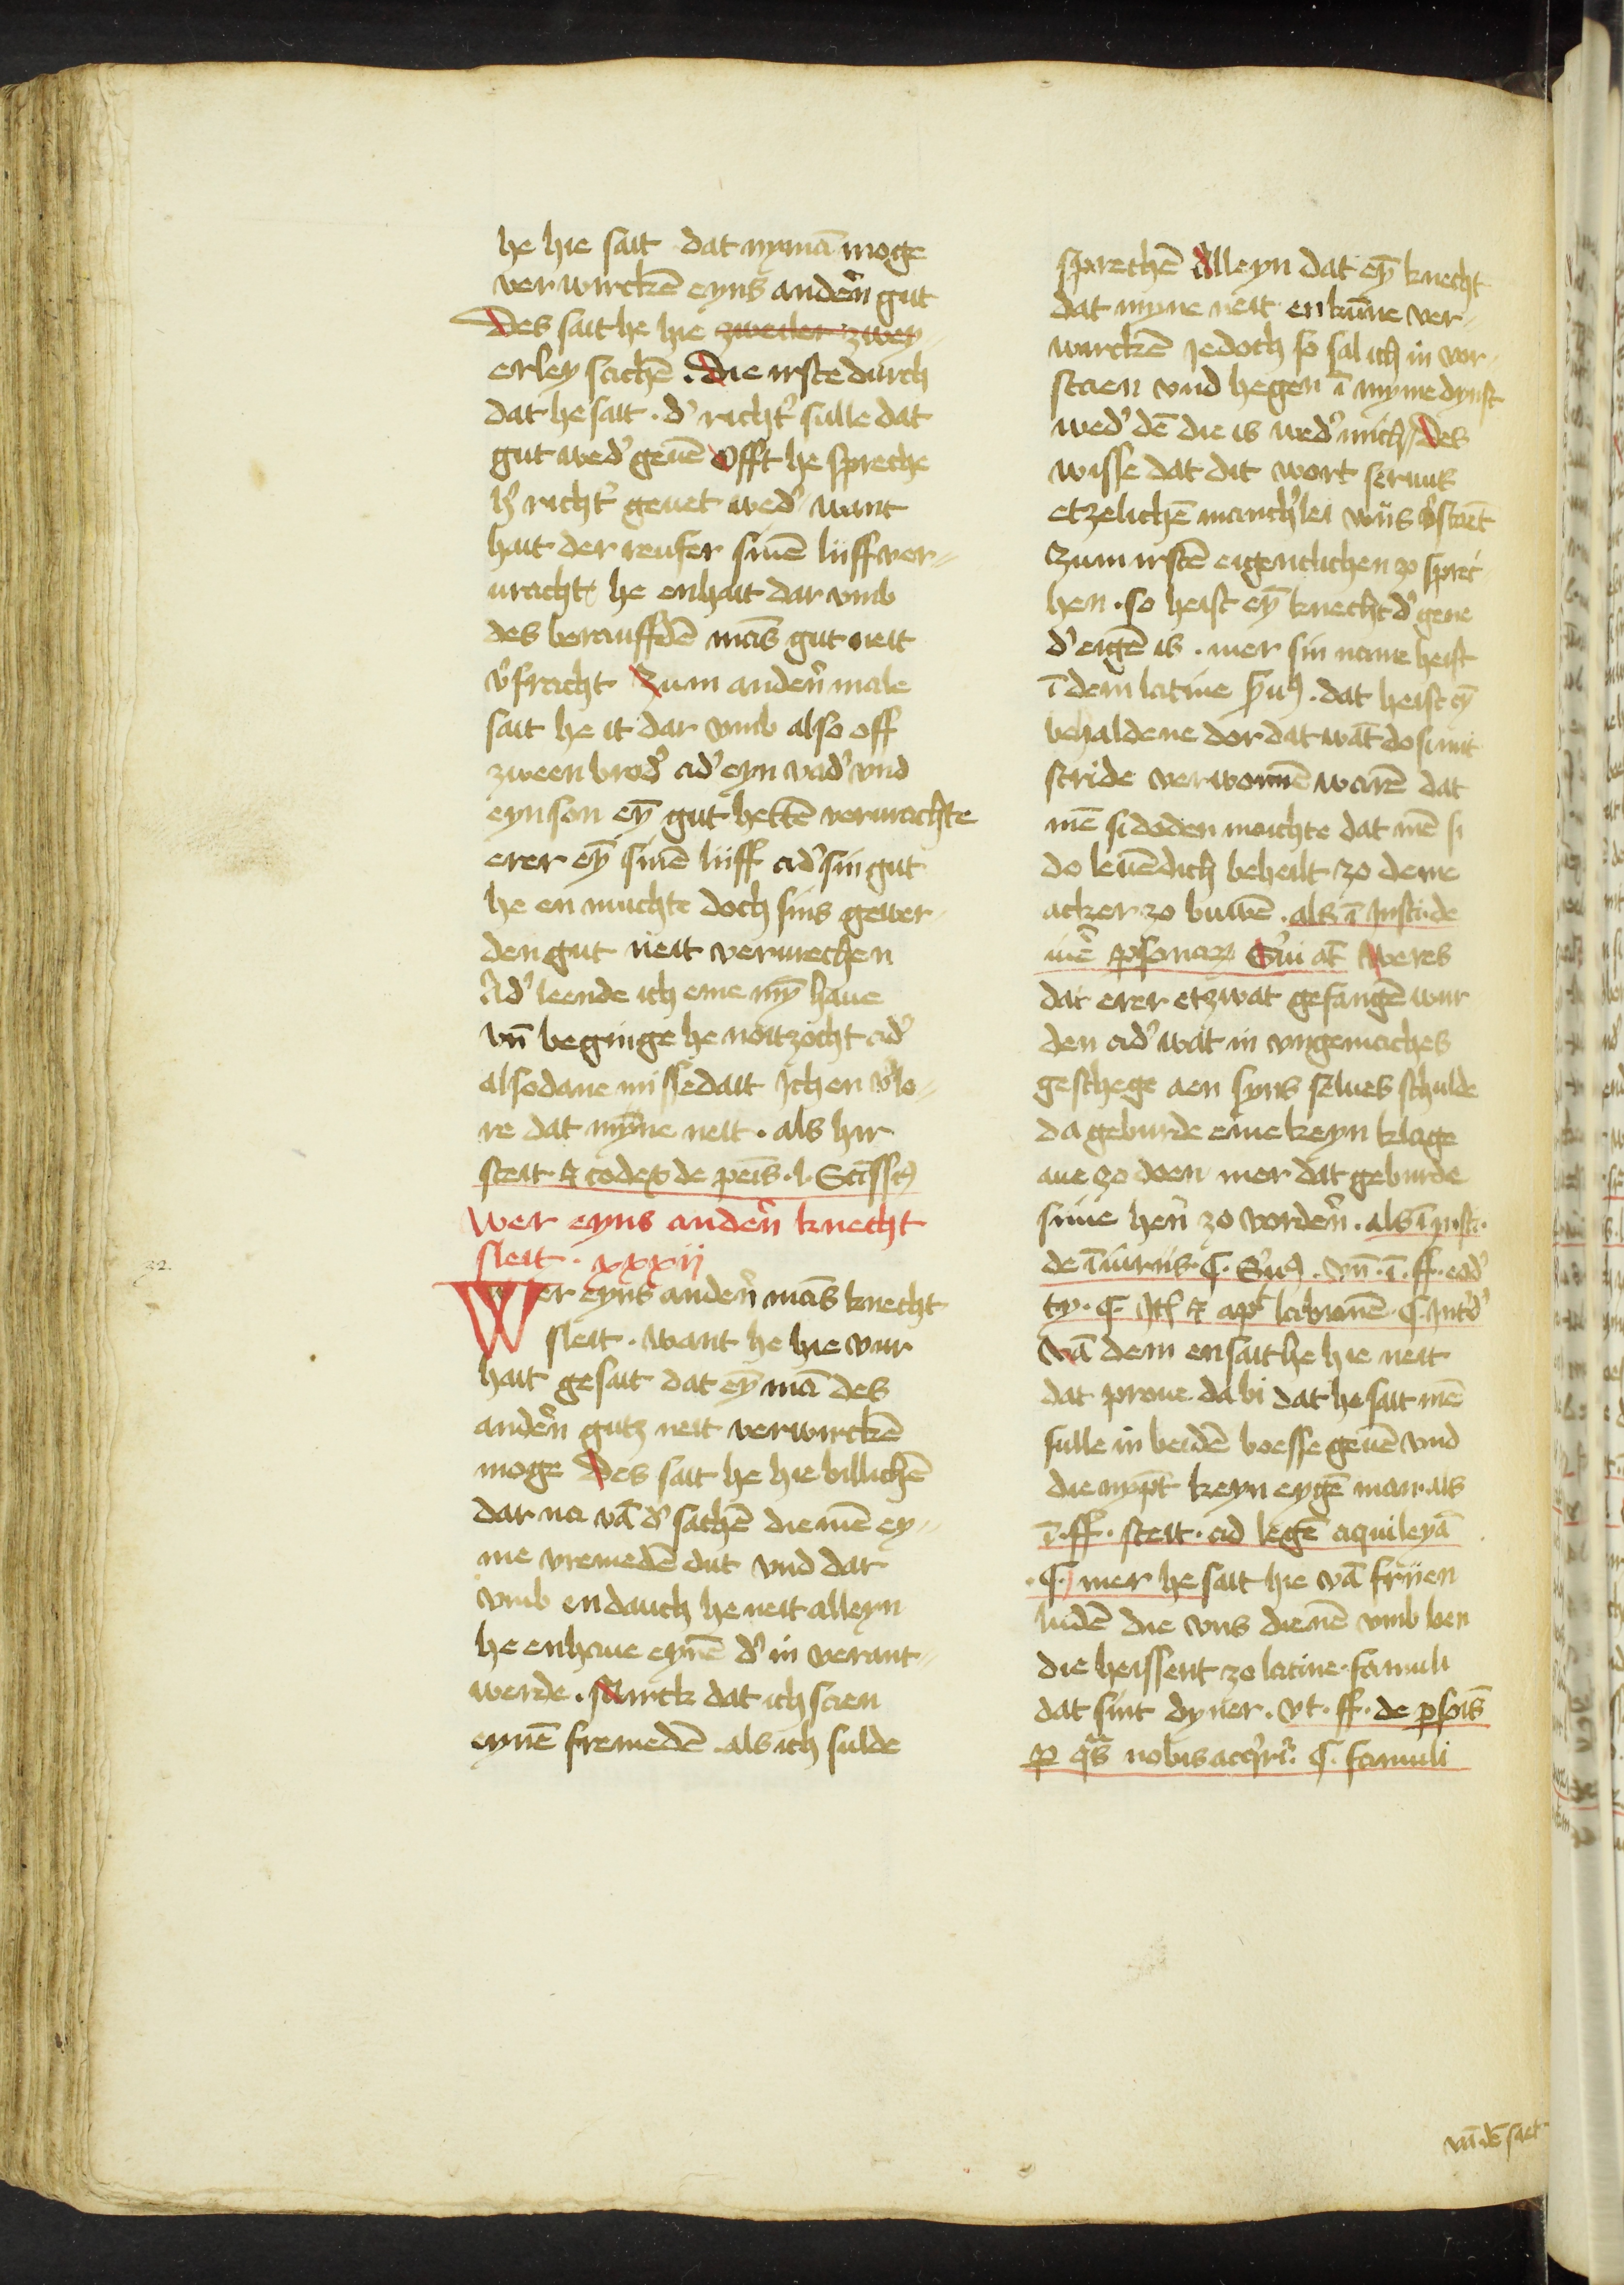 he hie sait dat nymā moge
verwircken eyns andern̄ gut
Des sait he hie zweiler zwey-
erley sachē . Die irste durch
dat he sait . d' richt' sulle dat
gut wed' geuē Offt he spreche
h' richt' geuet wed' want
hait der reufer sinē lijff ver-
uracht he enhait dar vmb
des berauffdē mās gut neit
v'fracht Zum andern̄ male
sait he it dar vmb also off
zween brod' ad' eyn vad' vnd
eyn son eȳ gut hettē vermachte
erer eȳ sinē lijff ad' sin gut
he en muchte doch sins gewer-
den gut neit vermechen
Ad' leende ich eme mȳ haue
vn̄ beginge he noitzocht ad'
alsodane missedait Ich en v'lo-
re dat mȳne neit . als hir
steit codex de peīs . l.
Wer eyns andern̄ knecht
sleit . xxxij
32.
Wer eyns andern̄ mās knecht
sleit . want he hie vur
hait gesait dat eȳ mā des
andern̄ gutz neit verwirckē
moge Des sait he hie billichē
dar na vā d' sachē die mē ey-
me vremedē dut vnd dar
vmb en dauch he neit alleyn
he enhaue eynē d' in verant-
werde . Mirck dat ich scaen
eynē fremedē . als ich sulde
sprechē Alleyn dat eȳ knecht
dat myne neit enkūne ver-
wirckē Jedoch so sal ich in vor-
staen vnd hegen ī myme dynst
wed' dē die is wed' mich Des
wisse dat dit wort seruus
etzelichē manch'lei wijs
Zum irstē eigentlichen zo sprec-
hen . so heist eȳ knecht d' gene
d' eigē is . mer sin name heist
ī dem latine . dat heist eȳ
behaldene dor dat wāt do si mit
stride verwonnē warē dat
mē si doden moichte dat mē si
do leuēdich beheilt zo deme
acker zo buwē . als ī Insti. de
iure Weres
dat erer etzwat gefangē wur
den ad' wat in vngemaches
geschege aen syns selues schulde
da geburde eme keyn klage
aue zo doen mer dat geburde
sime hern̄ zo vordern̄ . als ī Insti.
de īiuriis . C. . vn̄ . ī . ff . eod'
ty. C.
Vā dem en sait he hie neit
dat proue da bi dat he sait mē
sulle in beidē boesse geuē vnd
die nȳpt keyn eygē man . als
ī . ff . steit . ad legē aquileyā
. C. mer he sait hie vā frijen
ludē die vns dienē vmb len
die heissent zo latine . famuli
dat sint dyner . vt . ff . de
nobis C. famuli
vā dē sait